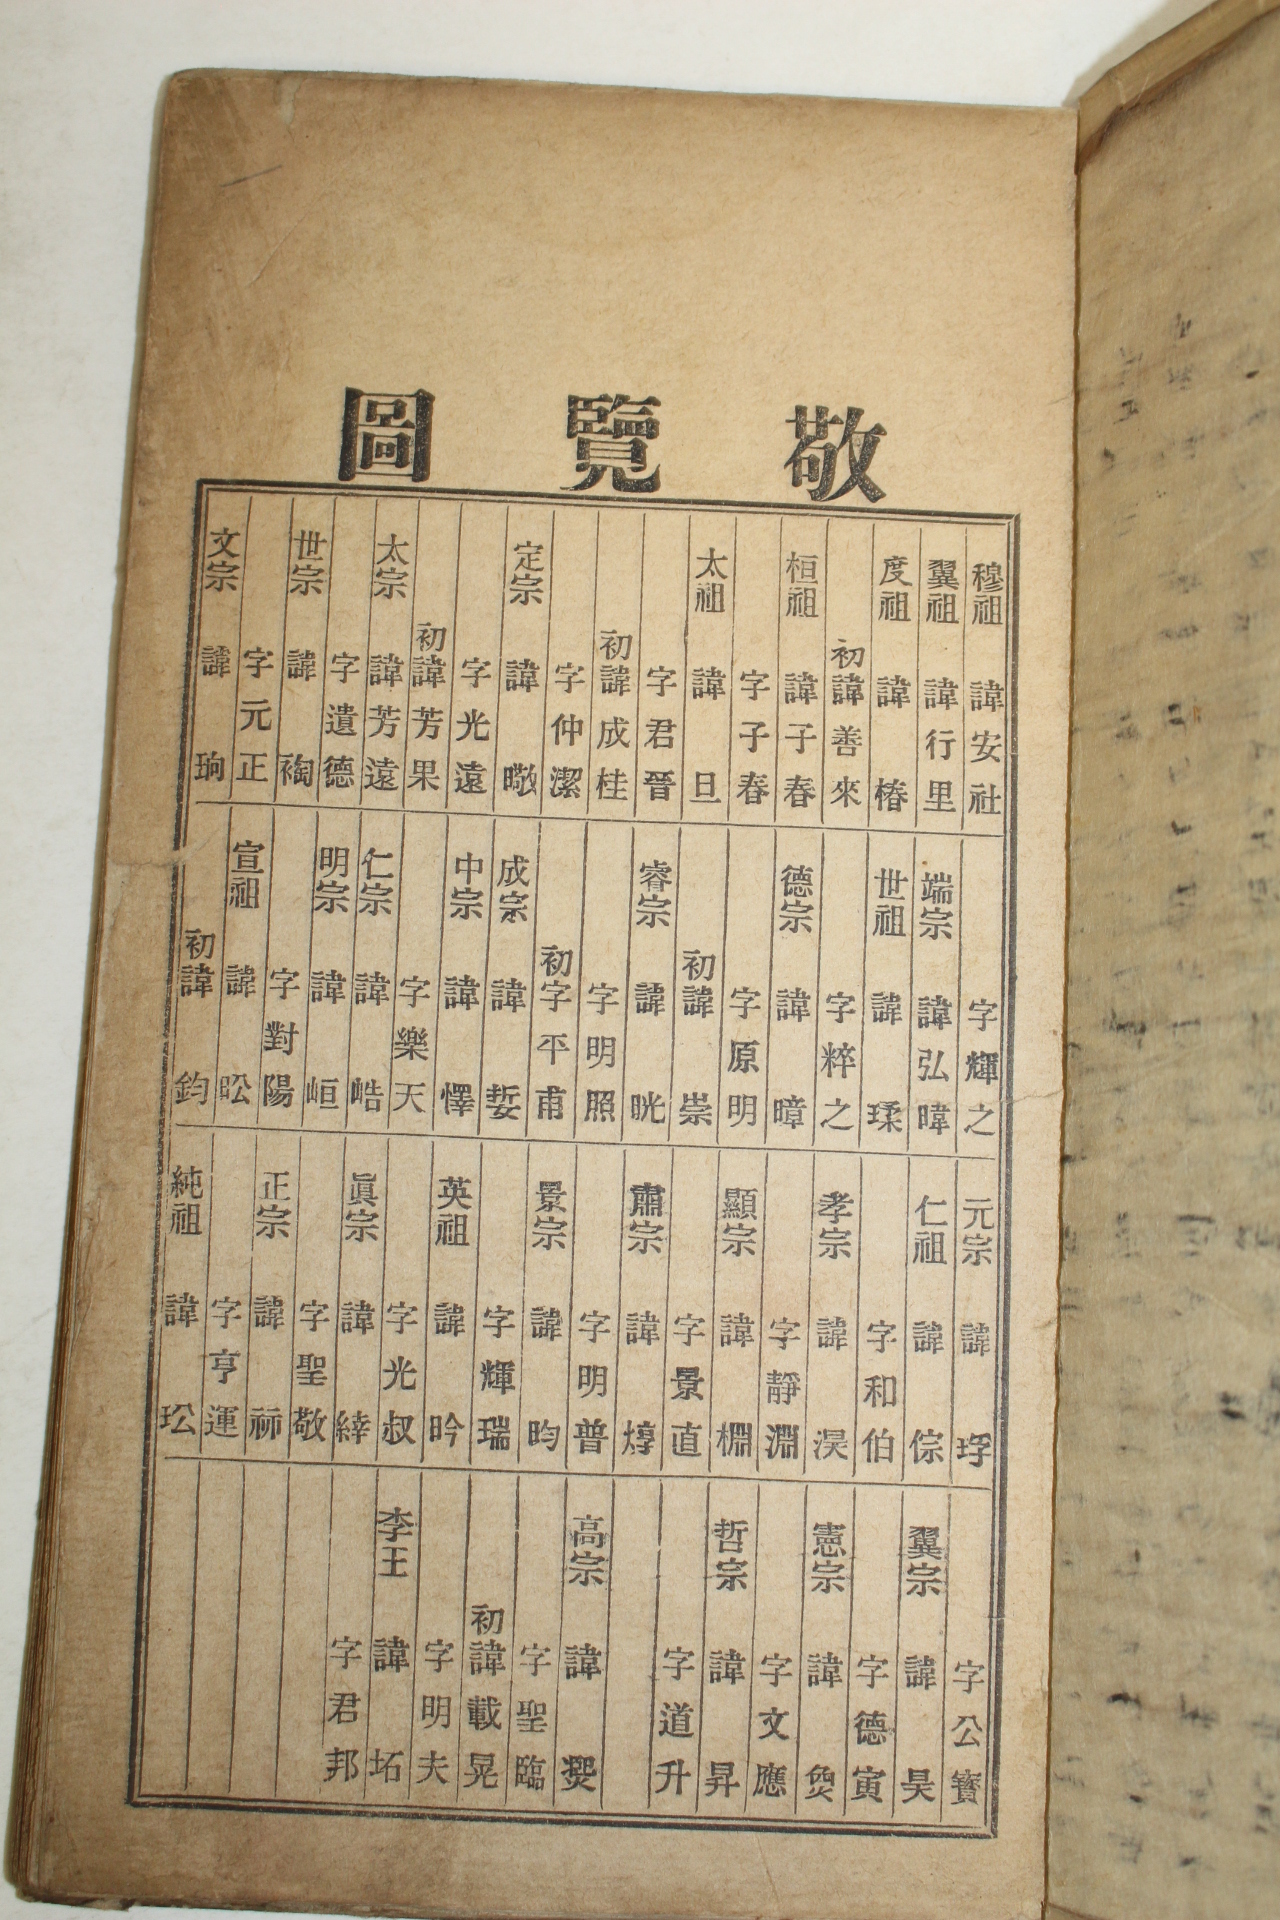 敬覽圖
穆祖 諱安社
翼祖 諱行里
度祖 諱椿
初諱善來
桓祖 諱子春
字子春
太祖 諱旦
字君晉
初諱成桂
字仲潔
定宗 諱曔
字光遠
初諱芳果
太宗 諱芳遠
字遺德
世宗 諱祹
字元正
文宗 諱珦
字輝之
端宗 諱弘暐
世祖 諱瑈
字粹之
德宗 諱暲
字原明
初諱崇
睿宗 諱晄
字明照
初字平甫
成宗 諱娎
中宗 諱懌
字樂天
仁宗 諱峼
明宗 諱峘
字對陽
宣祖 諱昖
初諱鈞
元宗 諱琈
仁祖 諱倧
字和伯
孝宗 諱淏
字靜淵
顯宗 諱棩
字景直
肅宗 諱焞
字明普
景宗 諱昀
字輝瑞
英祖 諱昑
字光叔
眞宗 諱緈
字聖敬
正宗 諱祘
字亨運
純祖 諱玜
字公寶
翼宗 諱旲
字德寅
憲宗 諱烉
字文應
哲宗 諱昇
字道升
高宗 諱㷗
字聖臨
初諱載晃
字明夫
李王 諱坧
字君邦